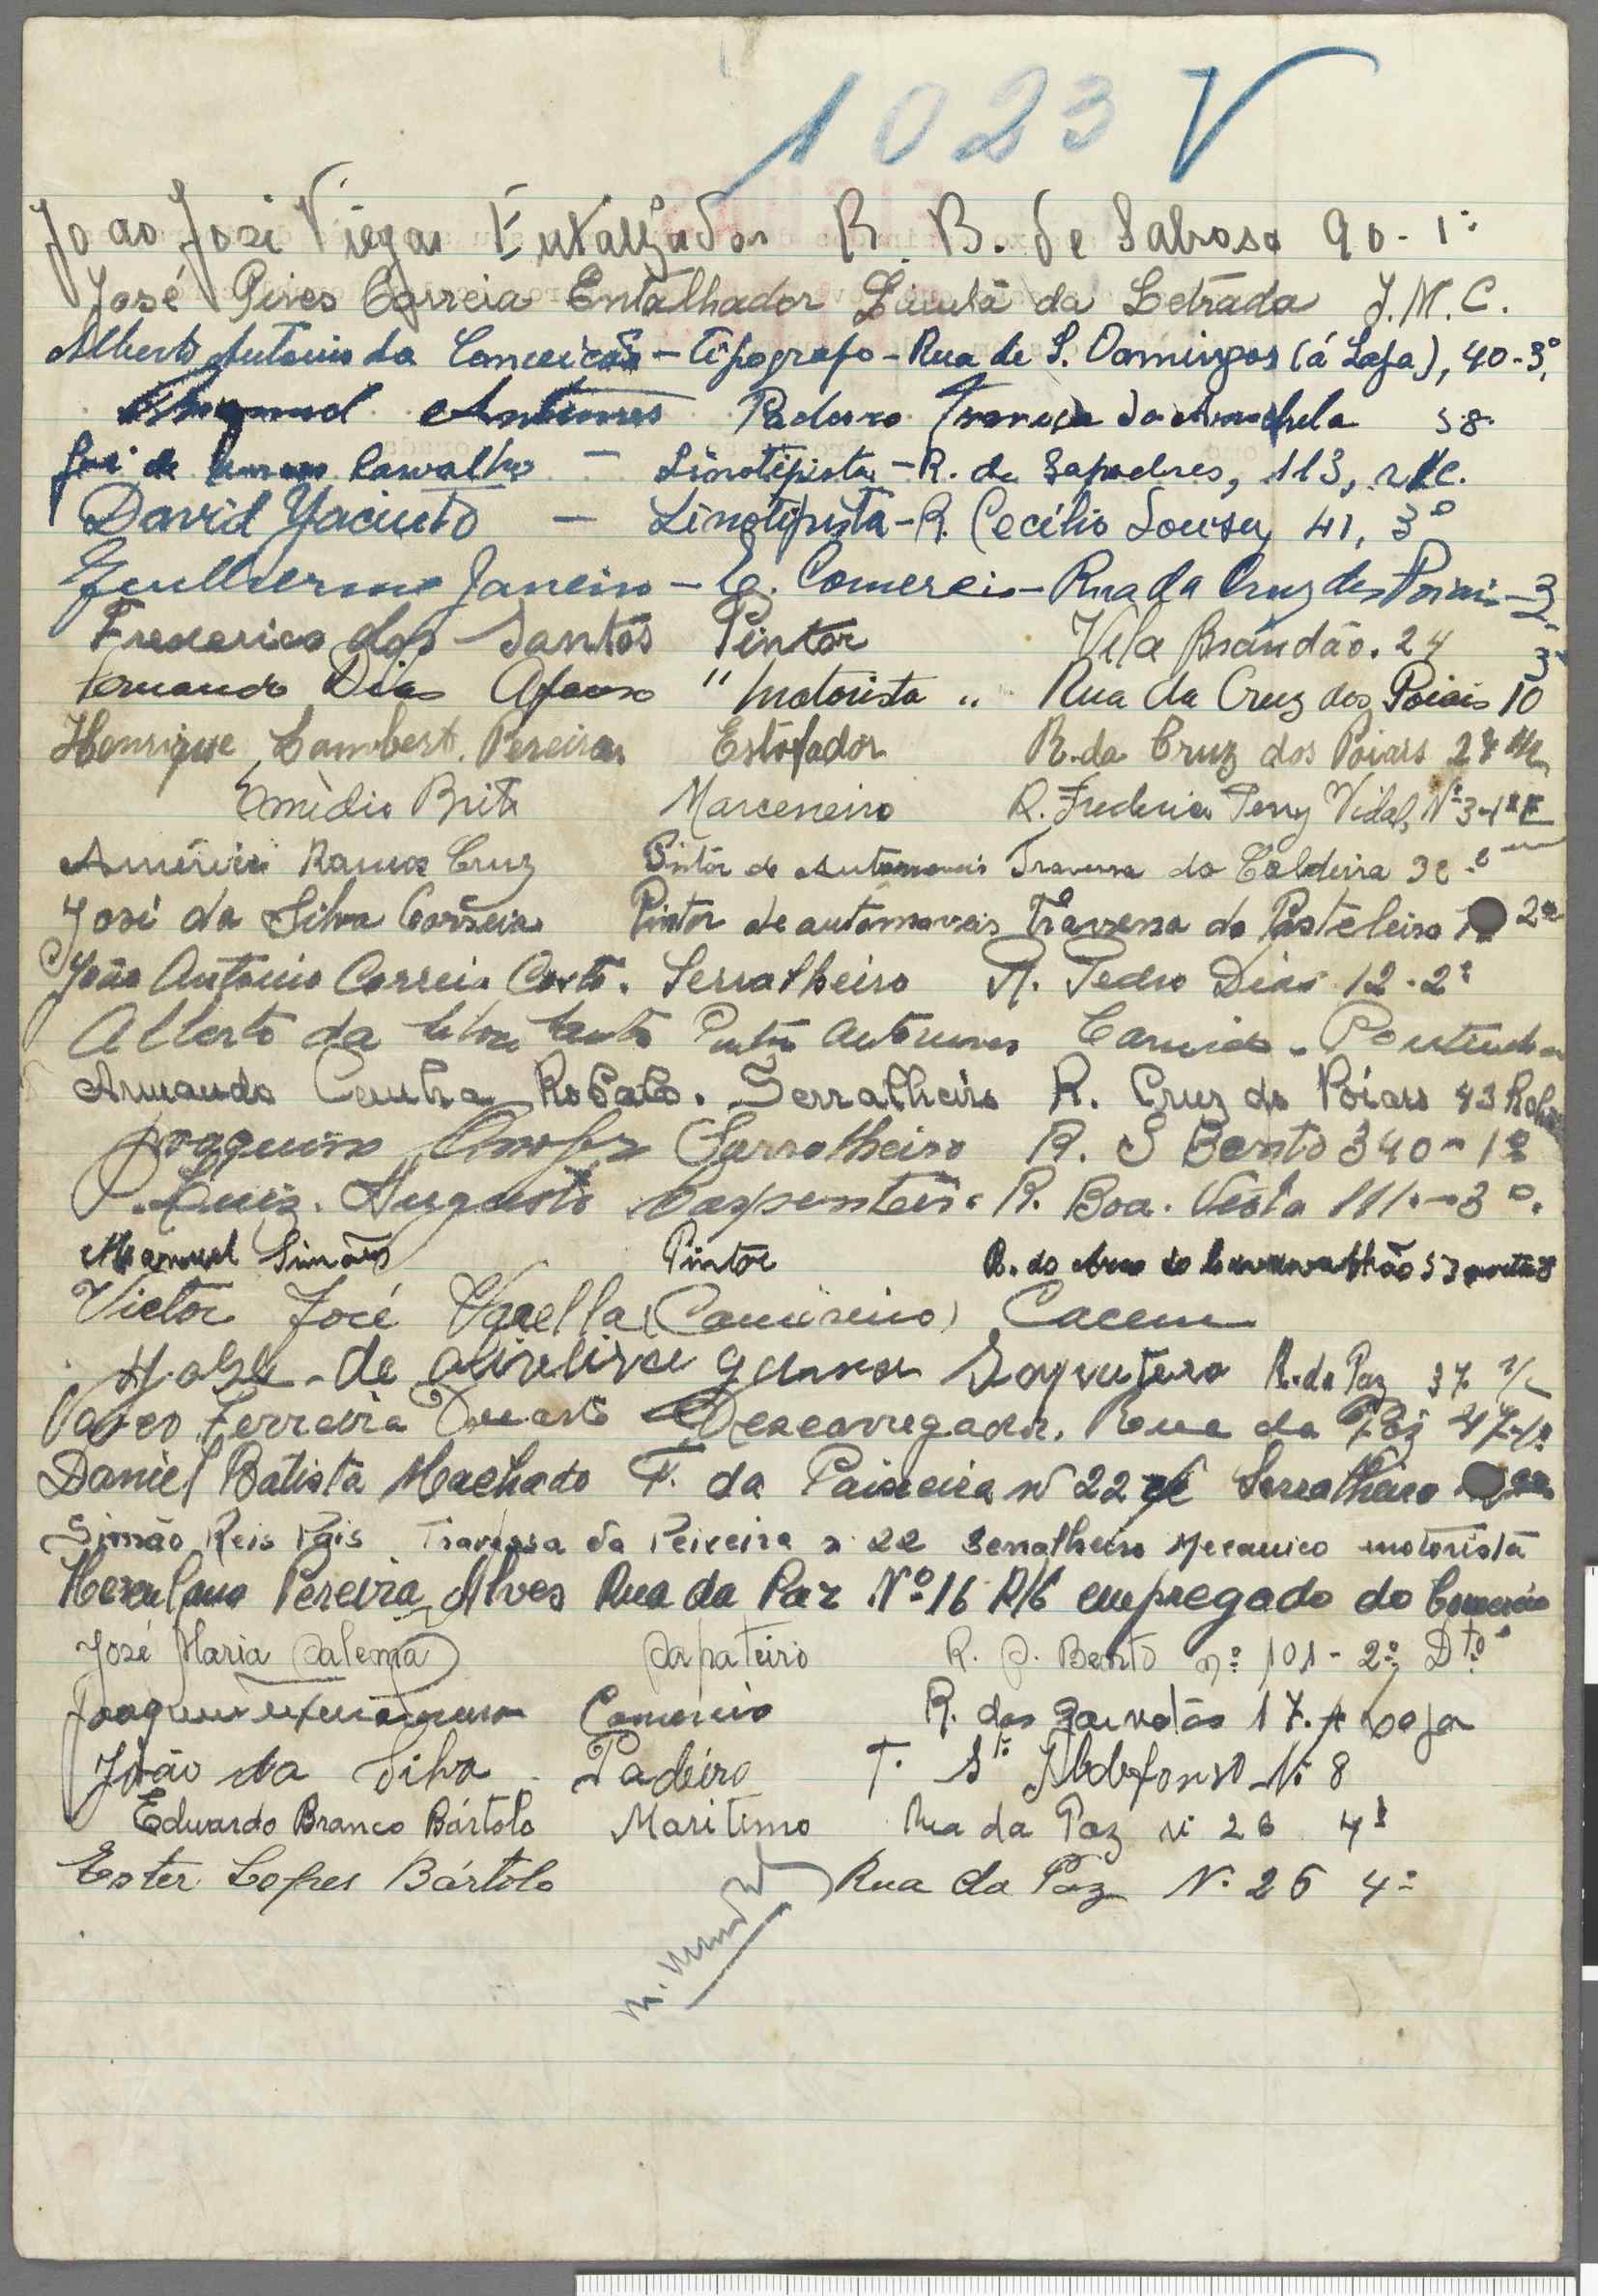 1023 V
João José Viegas Entalhador R. B. de Sabrosa 90-1º
José Pires Correia Entalhador da Letrada J.M.C.
Alberto Antonio da Conceição - tipografo - Rua de S. Domingos (á Lapa), 40-3º
Antunes Padeiro 58
José de Carvalho - Linotipista - R. de Sapadores, 113, r/c.
David Jacinto - Linotipista - R. Cecilio Sousa, 41, 3º
Guilherme Janeiro - E. Comercio - Rua da Cruz dos Poiais - 3
Frederico dos Santos Pintor Vila Brandão. 24 3º
Fernando Dias Afonso " Motorista " Rua da Cruz dos Poiais 10
Henrique Lambert. Pereira Estofador R. da Cruz dos Poiais 28
Emidio Brito Marceneiro R. Frederico Perry Vidal, Nº 3-1º E
Américo Ramos Cruz Pintor de Automoveis Travessa do Caldeira
José da Silva Correia Pintor de automoveis Travessa do Pasteleiro 2º
João Antonio Correia Couto. Serralheiro R. Pedro Dias 12-2º
Alberto da Silva Pintor Automoveis - Pontinha
Armando Cunha Robalo. Serralheiro R. Cruz do Poiais 43
Joaquim Serralheiro R. S Bento 340-1º
Luiz. Augusto Carpinteiro R. Boa. Vista 111.-3º.
Manuel Simões Pintor R. do Arco do 53
Victor José Varella (Camiseiro) Cacem
de Oliveira gama R. da Paz 37 r/c
Vasco Ferreira Duarte Descarregador. Rua da Paz 47-1º
Daniel Batista Machado T. da Paixeira nº 22 Serralheiro
Simão Reis Pais Travessa da Peixeira n 22 Serralheiro Mecanico motorista
Herculano Pereira Alves Rua da Paz Nº 16 R/C empregado do Comercio
José Maria Salema Sapateiro R. S. Bento nº 101-2º Dtº
Joaquim Comercio R. das gaivotas 17. loja
João da Silva Padeiro T. Stº Ildefonso Nº 8
Eduardo Branco Bártolo Maritimo Rua da Paz nº 26 4º
Ester Lopes Bártolo Rua da Paz Nº 26 4º